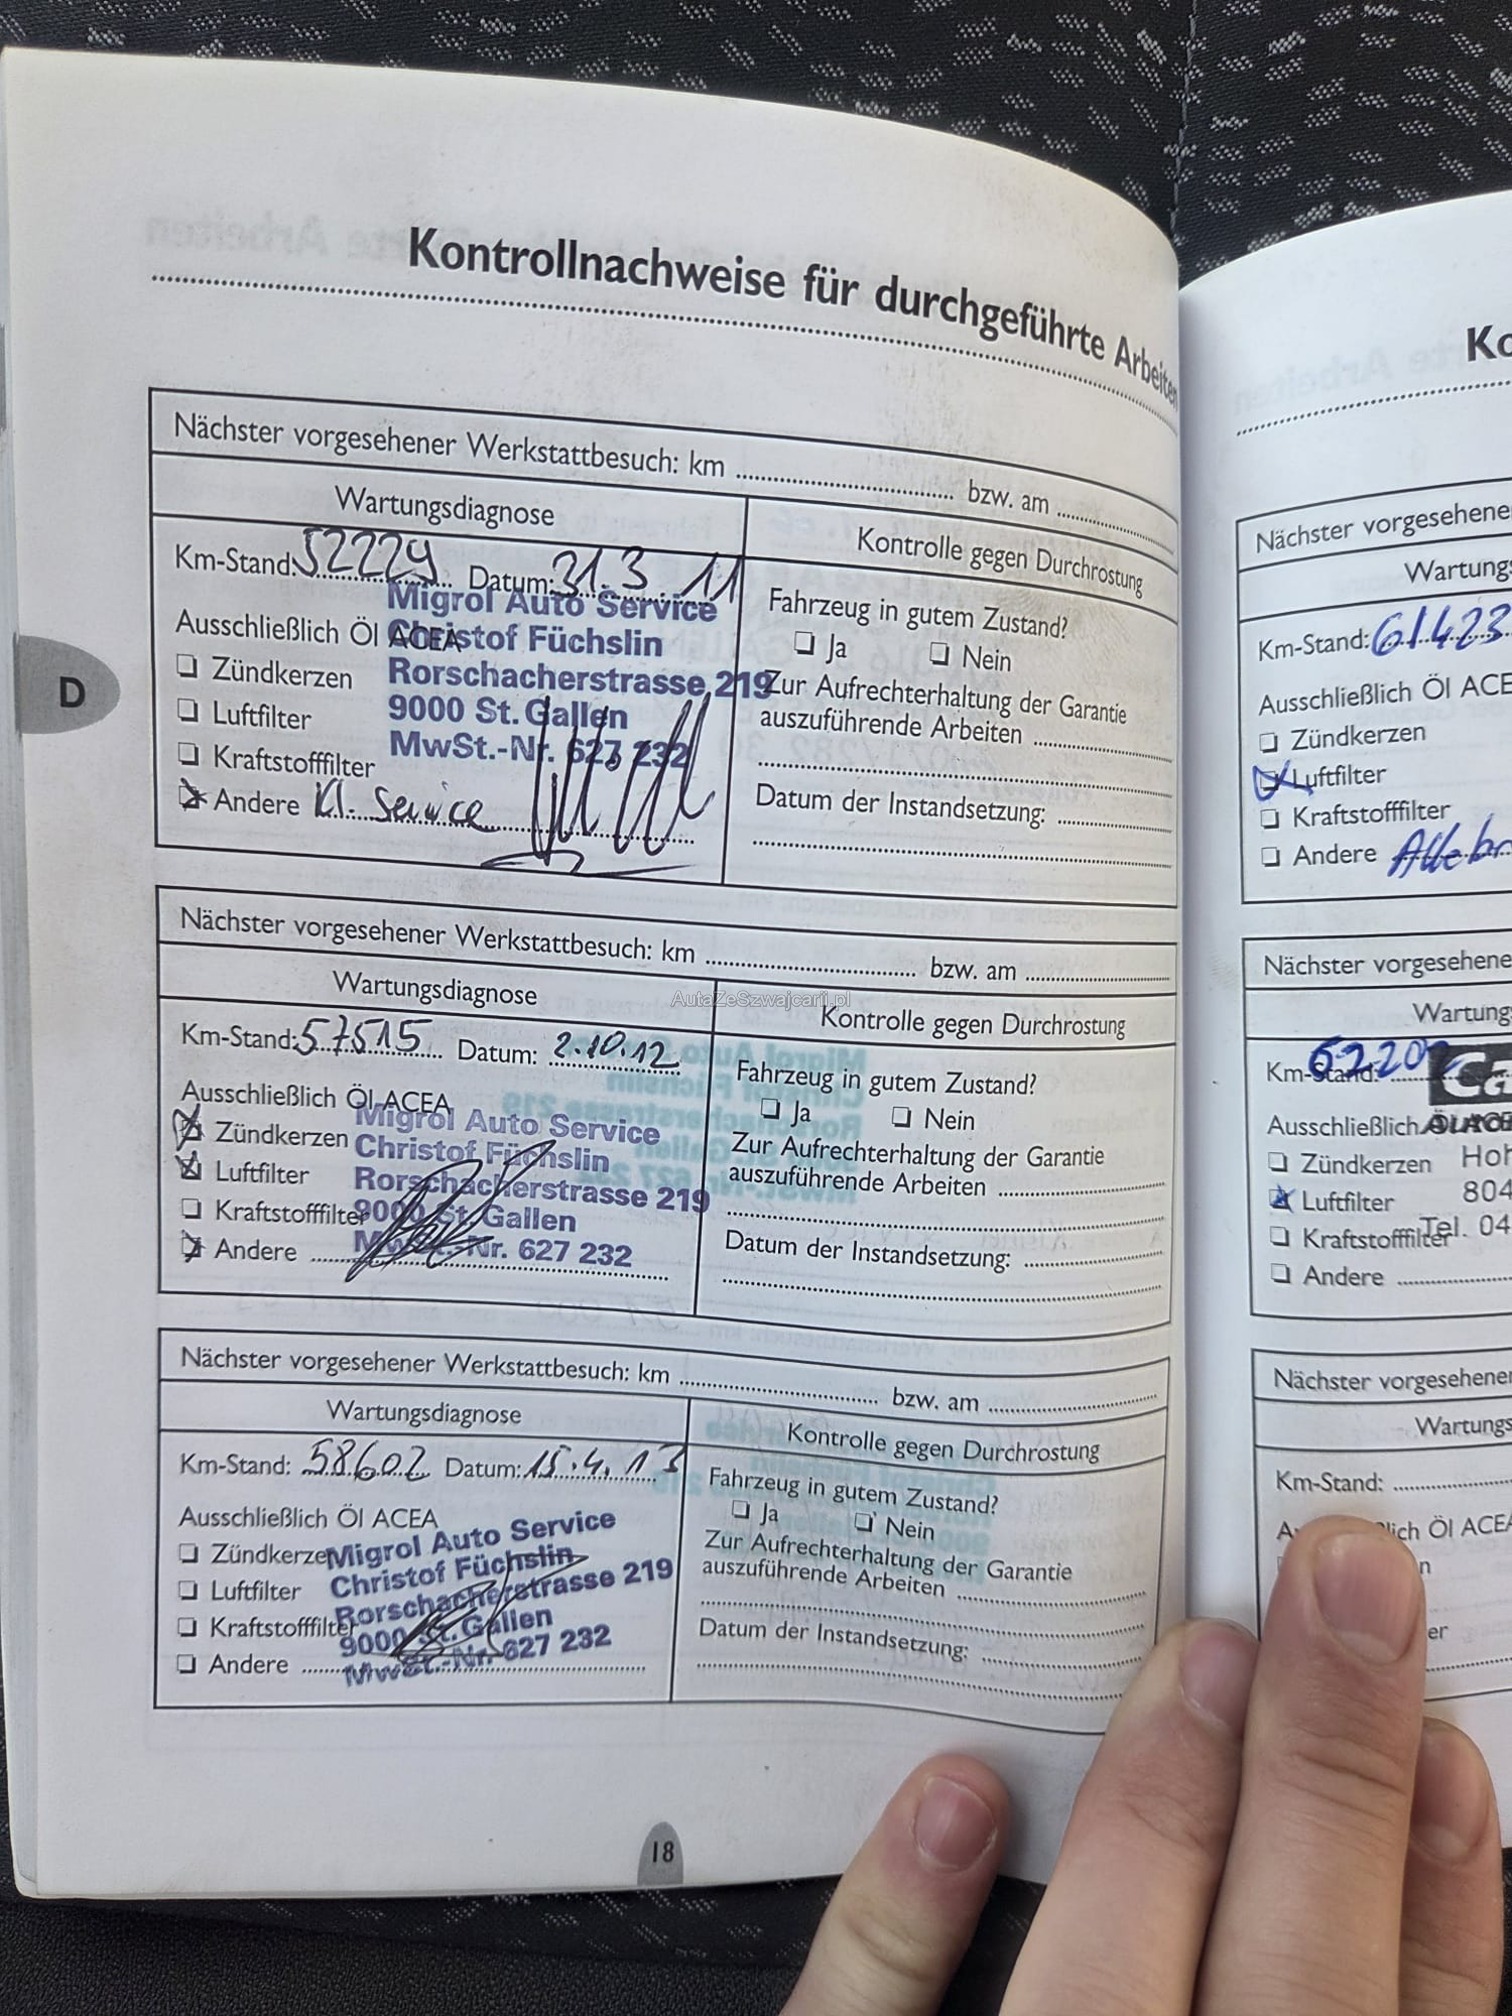 Kontrollnachweise für durchgeführte Arbeiten
D
Nächster vorgesehener Werkstattbesuch: km bzw. am
Wartungsdiagnose
Kontrolle gegen Durchrostung
Km-Stand: 52229 Datum: 31.3.11
Ausschließlich Öl ACEA
Zündkerzen
Luftfilter
Kraftstofffilter
Andere Kl. Service
Migrol Auto Service
Christof Füchslin
Rorschacherstrasse 219
9000 St. Gallen
MwSt.-Nr. 627 232
Fahrzeug in gutem Zustand?
Ja Nein
Zur Aufrechterhaltung der Garantie
auszuführende Arbeiten
Datum der Instandsetzung:
Nächster vorgesehener Werkstattbesuch: km bzw. am
Wartungsdiagnose
Kontrolle gegen Durchrostung
Km-Stand: 57515 Datum: 2.10.12
Ausschließlich Öl ACEA
Zündkerzen
Luftfilter
Kraftstofffilter
Andere
Migrol Auto Service
Christof Füchslin
Rorschacherstrasse 219
9000 St. Gallen
MwSt.-Nr. 627 232
Fahrzeug in gutem Zustand?
Ja Nein
Zur Aufrechterhaltung der Garantie
auszuführende Arbeiten
Datum der Instandsetzung:
Nächster vorgesehener Werkstattbesuch: km bzw. am
Wartungsdiagnose
Kontrolle gegen Durchrostung
Km-Stand: 58602 Datum: 15.4.13
Ausschließlich Öl ACEA
Zündkerzen
Luftfilter
Kraftstofffilter
Andere
Migrol Auto Service
Christof Füchslin
Rorschacherstrasse 219
9000 St. Gallen
MwSt.-Nr. 627 232
Fahrzeug in gutem Zustand?
Ja Nein
Zur Aufrechterhaltung der Garantie
auszuführende Arbeiten
Datum der Instandsetzung:
18
AutaZeSzwajcarii.pl
Ko
Nächster vorgesehene
Wartungs
Km-Stand: 61423
Ausschließlich Öl ACE
Zündkerzen
Luftfilter
Kraftstofffilter
Andere
Nächster vorgesehene
Wartung
Km-Stand:
Ausschließlich
Zündkerzen Hoh
Luftfilter 804
Kraftstofffilter Tel. 04
Andere
Nächster vorgesehener
Wartungs
Km-Stand:
lich Öl ACEA
n
er